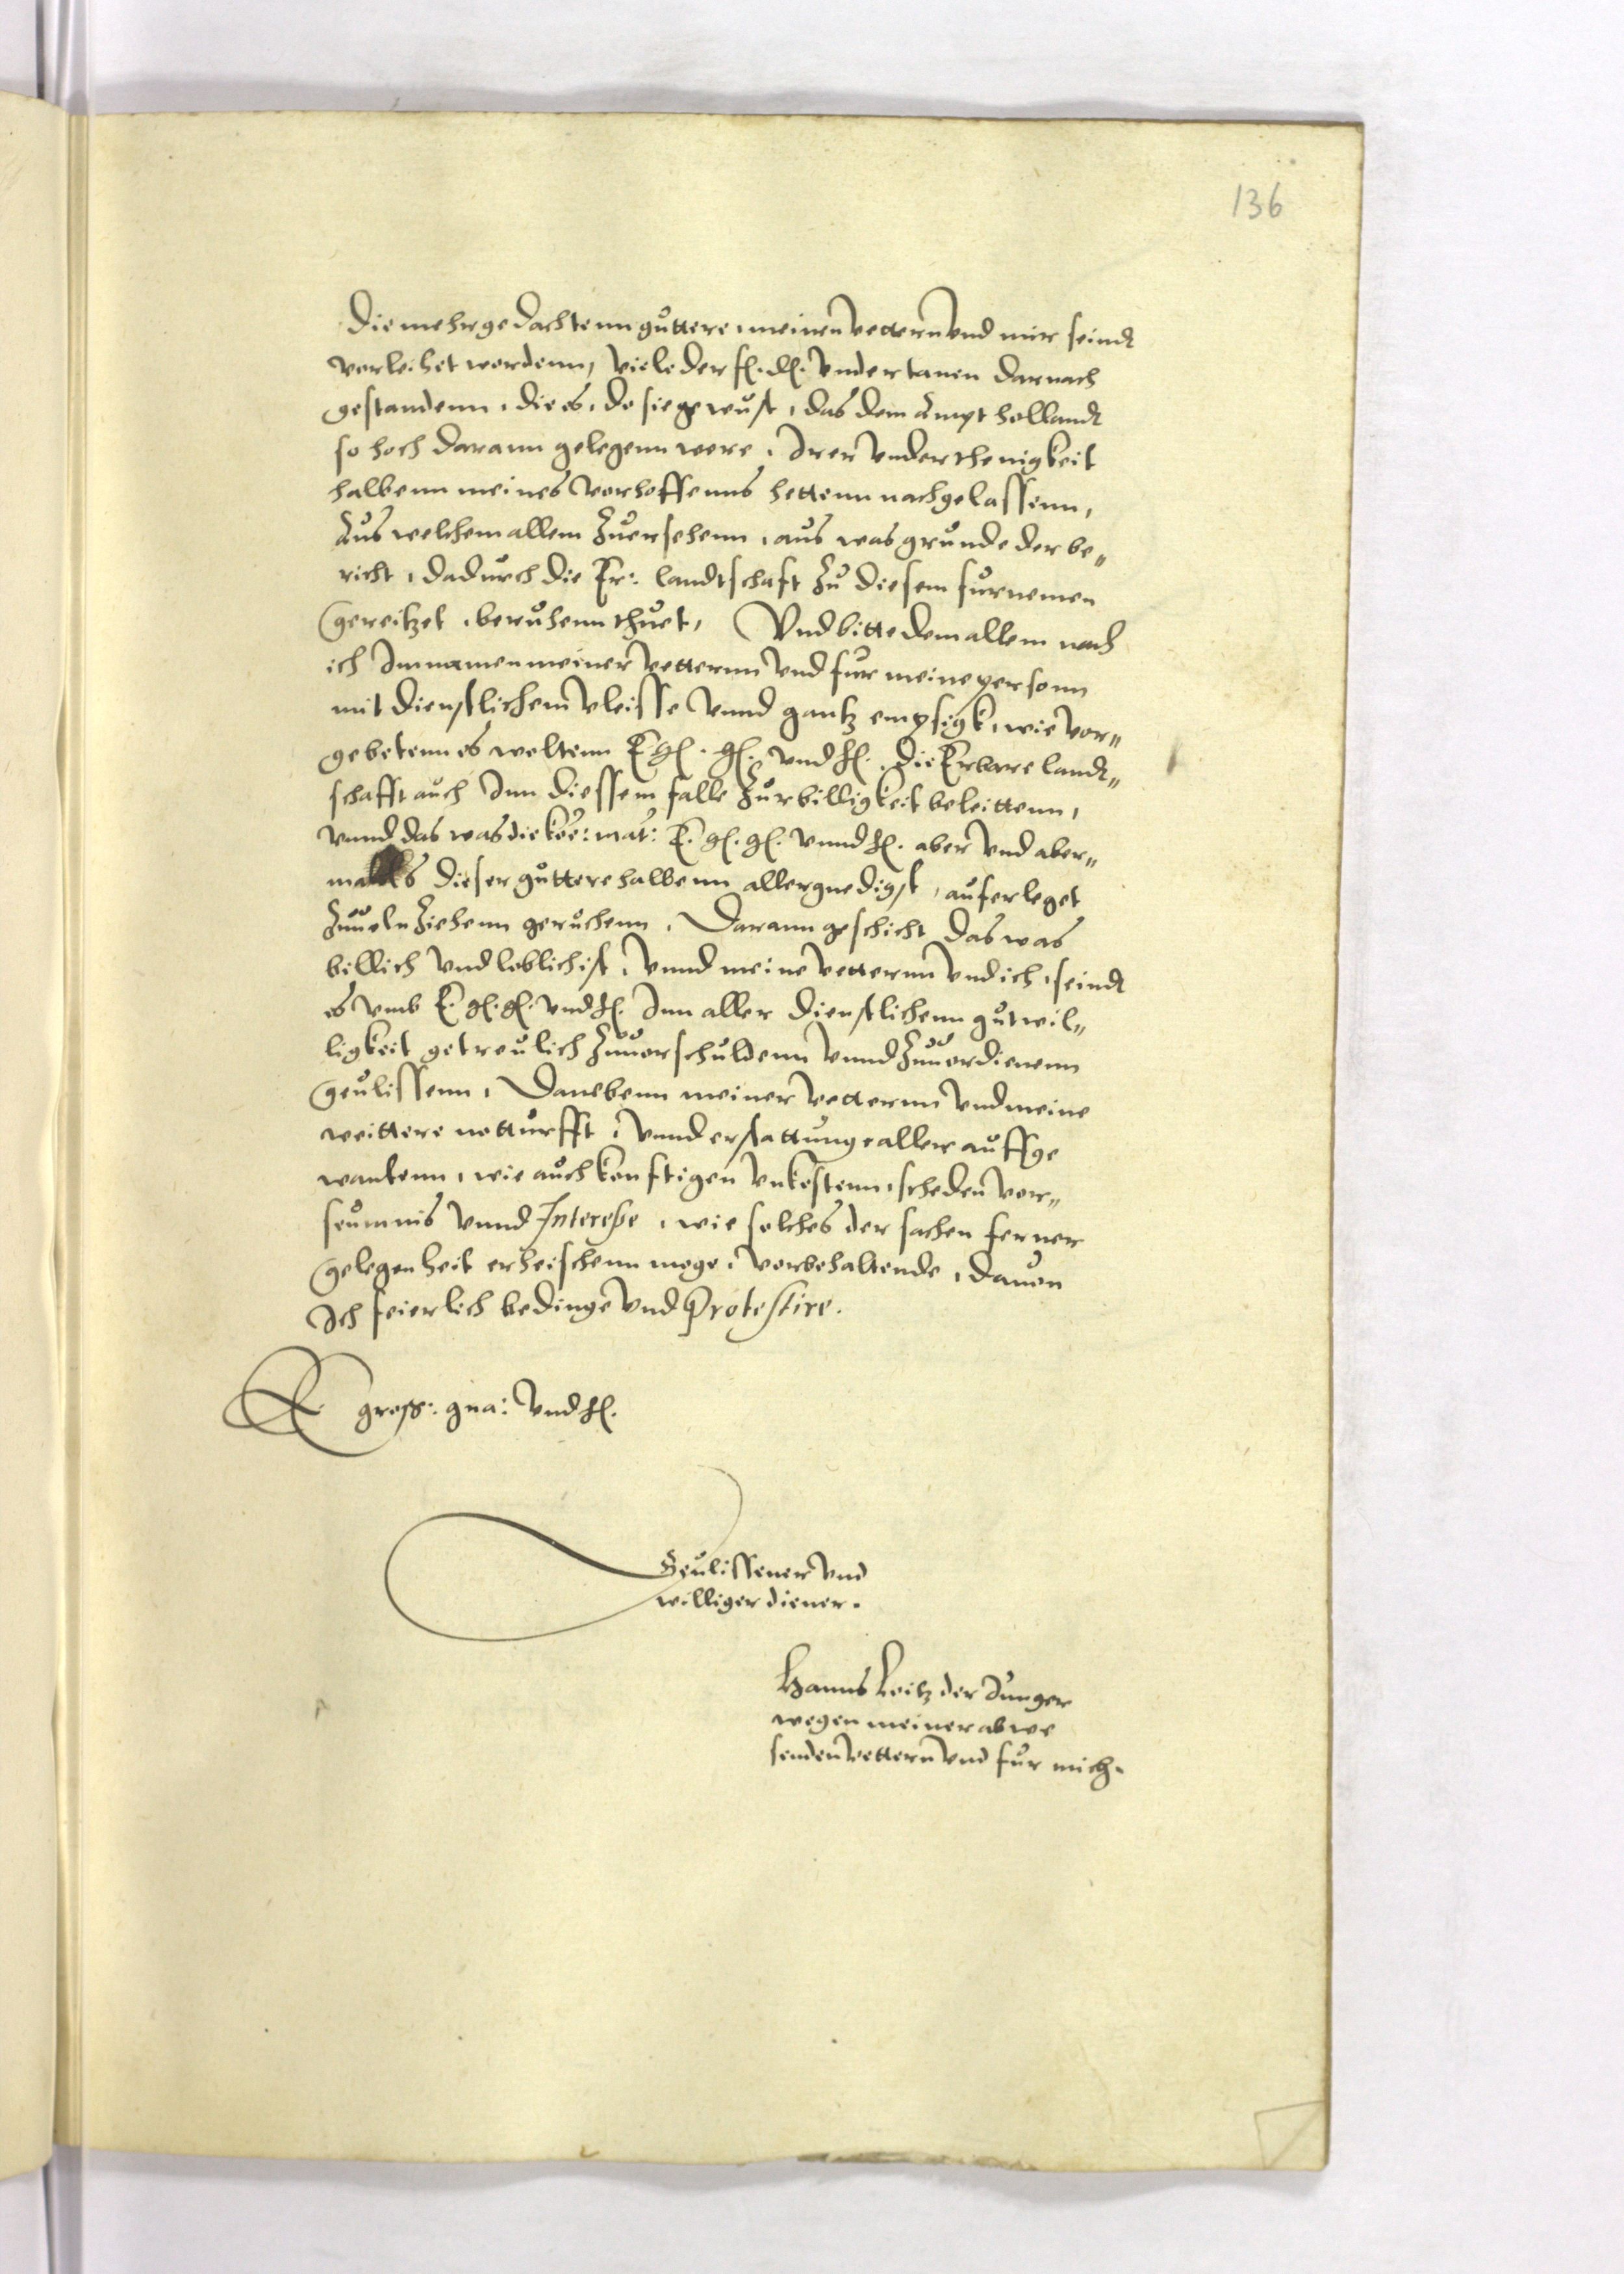 136
die mehrgedachtenn guttere, meinen vettern vnd mir seindt
vorleihet wordenn, viele der f. d. vndertanen darnach
gestandenn, die es, do sie gewust, das dem Ampt hollandt
so hoch darann gelegenn were, Irer vnderthenigkeit
halbenn meines vorhoffenns hettenn nachgelassenn,
Aus welchem allem zuersehenn, aus was grunde der be„
richt, dadurch die Er: landtschaft zu diesem furnemen
gereitzet, beruhenn thuet, Vnd bitte dem allem nach
ich Im namen meiner vetternn vnd fur meine personn
mit dienstlichem vleisse vnnd gantz empsigk, wie vor„
gebetenn es woltenn E. g. g. vnd h. die Erbare landt„
schafft auch Inn diessem falle zur billigkeit beleittenn,
vnnd das was die koe: mat: E. g. g. vnnd h. aber vnd aber„
malls dieser guttere halbenn allergnedigst, auferleget
zuuolnziehenn geruchenn, Darann geschicht das was
billich vnd loblich ist, vnnd meine vetternn vnd ich, seindt
es vmb E. g. g. vnd h. Inn aller dienstlichenn gutwil„
ligkeit getreulich zuuorschuldenn vnnd zuuordienenn
geulissenn, Danebenn meiner vetternn vnd meine
weittere notturfft, vnnd erstattunge aller auffge
wantenn, wie auch konftigen vnkostenn, scheden vor„
seumnis vnnd Interesse, wie solches der sachen ferner
gelegenheit erheischenn moge, vorbehaltende, dauon
Ich feierlich bedinge vnd Protestire.
E gross: gna: vnd h.
Geulissener vnd
williger diener.
Hanns Loitz der Junger
wegen meiner abwe
senden vettern vnd fur mich.